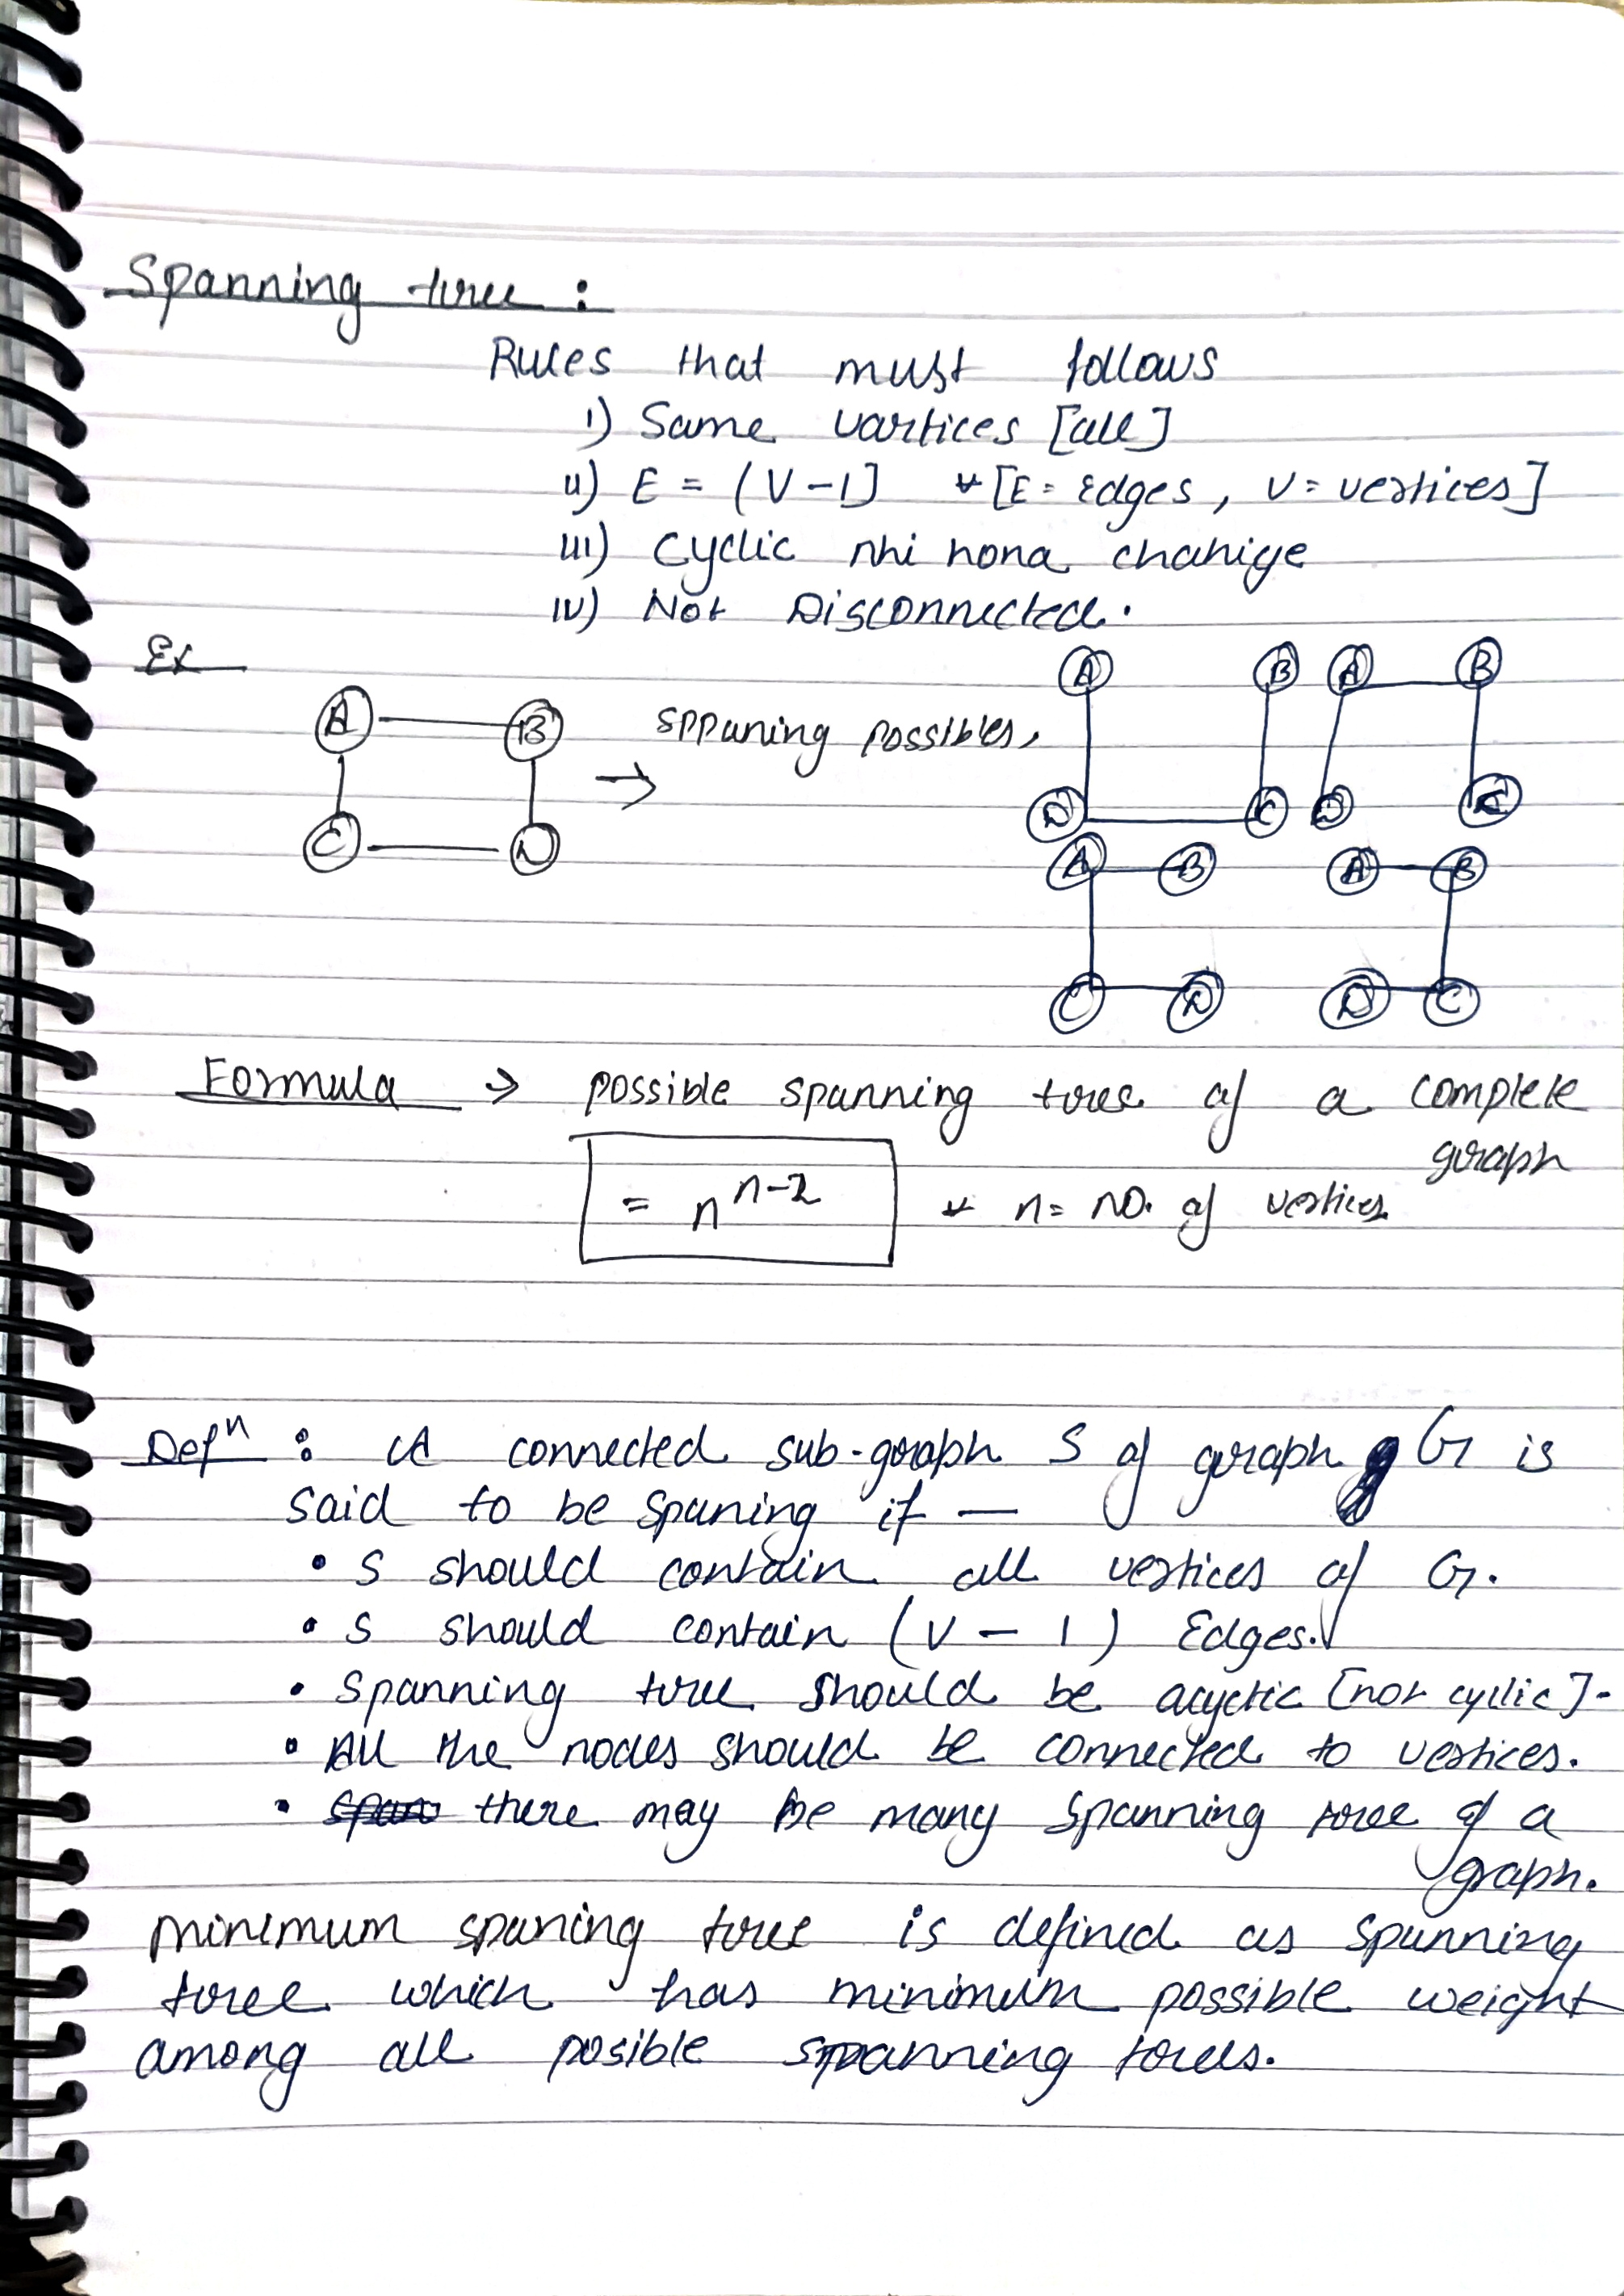 Spanning tree :
Rules that must follows
i) Same vartices [all]
ii) E = (V-1] * [E = Edges, V = vertices]
iii) Cyclic nhi hona chahiye
iv) Not Disconnected.
Ex
A B
C D
→ sppaning possibles,
A B A B
D C D C
A B A B
C D D C
Formula → possible spanning tree of a complete
graph
= n^{n-2} * n = no. of vertices
Defⁿ : A connected sub-graph S of graph G is
said to be spaning if —
• S should contain all vertices of G.
• S should contain (V - 1) Edges.
• Spanning tree should be acyclic [not cyclic].
• All the nodes should be connected to vertices.
• there may be many spanning tree of a
graph.
minimum spaning tree is defined as spanning
tree which has minimum possible weight
among all posible spanning trees.